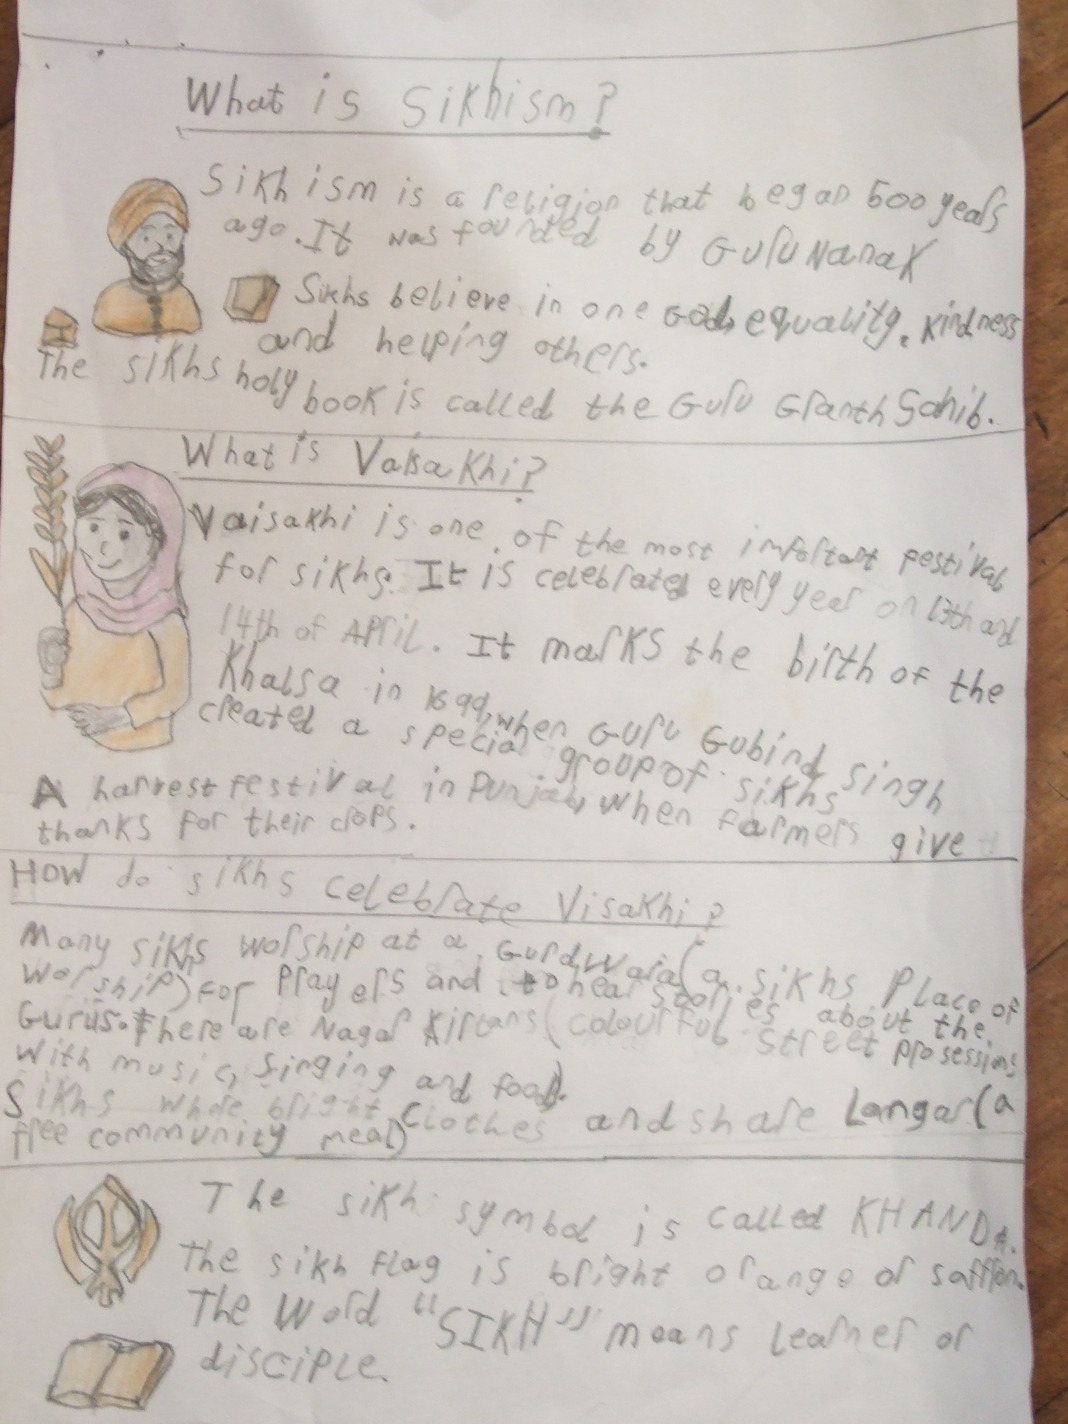 What is Sikhism?
Sikhism is a religion that began 500 years
ago. It was founded by Guru Nanak
Sikhs believe in one God, equality, kindness
and helping others.
The sikhs holy book is called the Guru Granth Sahib.
What is Vaisakhi?
Vaisakhi is one of the most important festival
for sikhs. It is celebrated every year on 13th and
14th of APRIL. It marks the birth of the
Khalsa in 1699, when Guru Gobind Singh
created a special group of sikhs
A harvest festival in Punjab, when farmers give
thanks for their crops.
How do sikhs celebrate Visakhi?
Many sikhs worship at a Gurdwara (a sikhs Place of
worship) for Prayers and to hear stories about the
Gurus. There are Nagar Kirtans (colourful street prosessions
with music, singing and food).
Sikhs whore bright clothes and share Langar (a
free community meal)
The sikh symbol is called KHANDA.
The sikh flag is bright orange or saffron.
The Word "SIKH" means learner or
disciple.